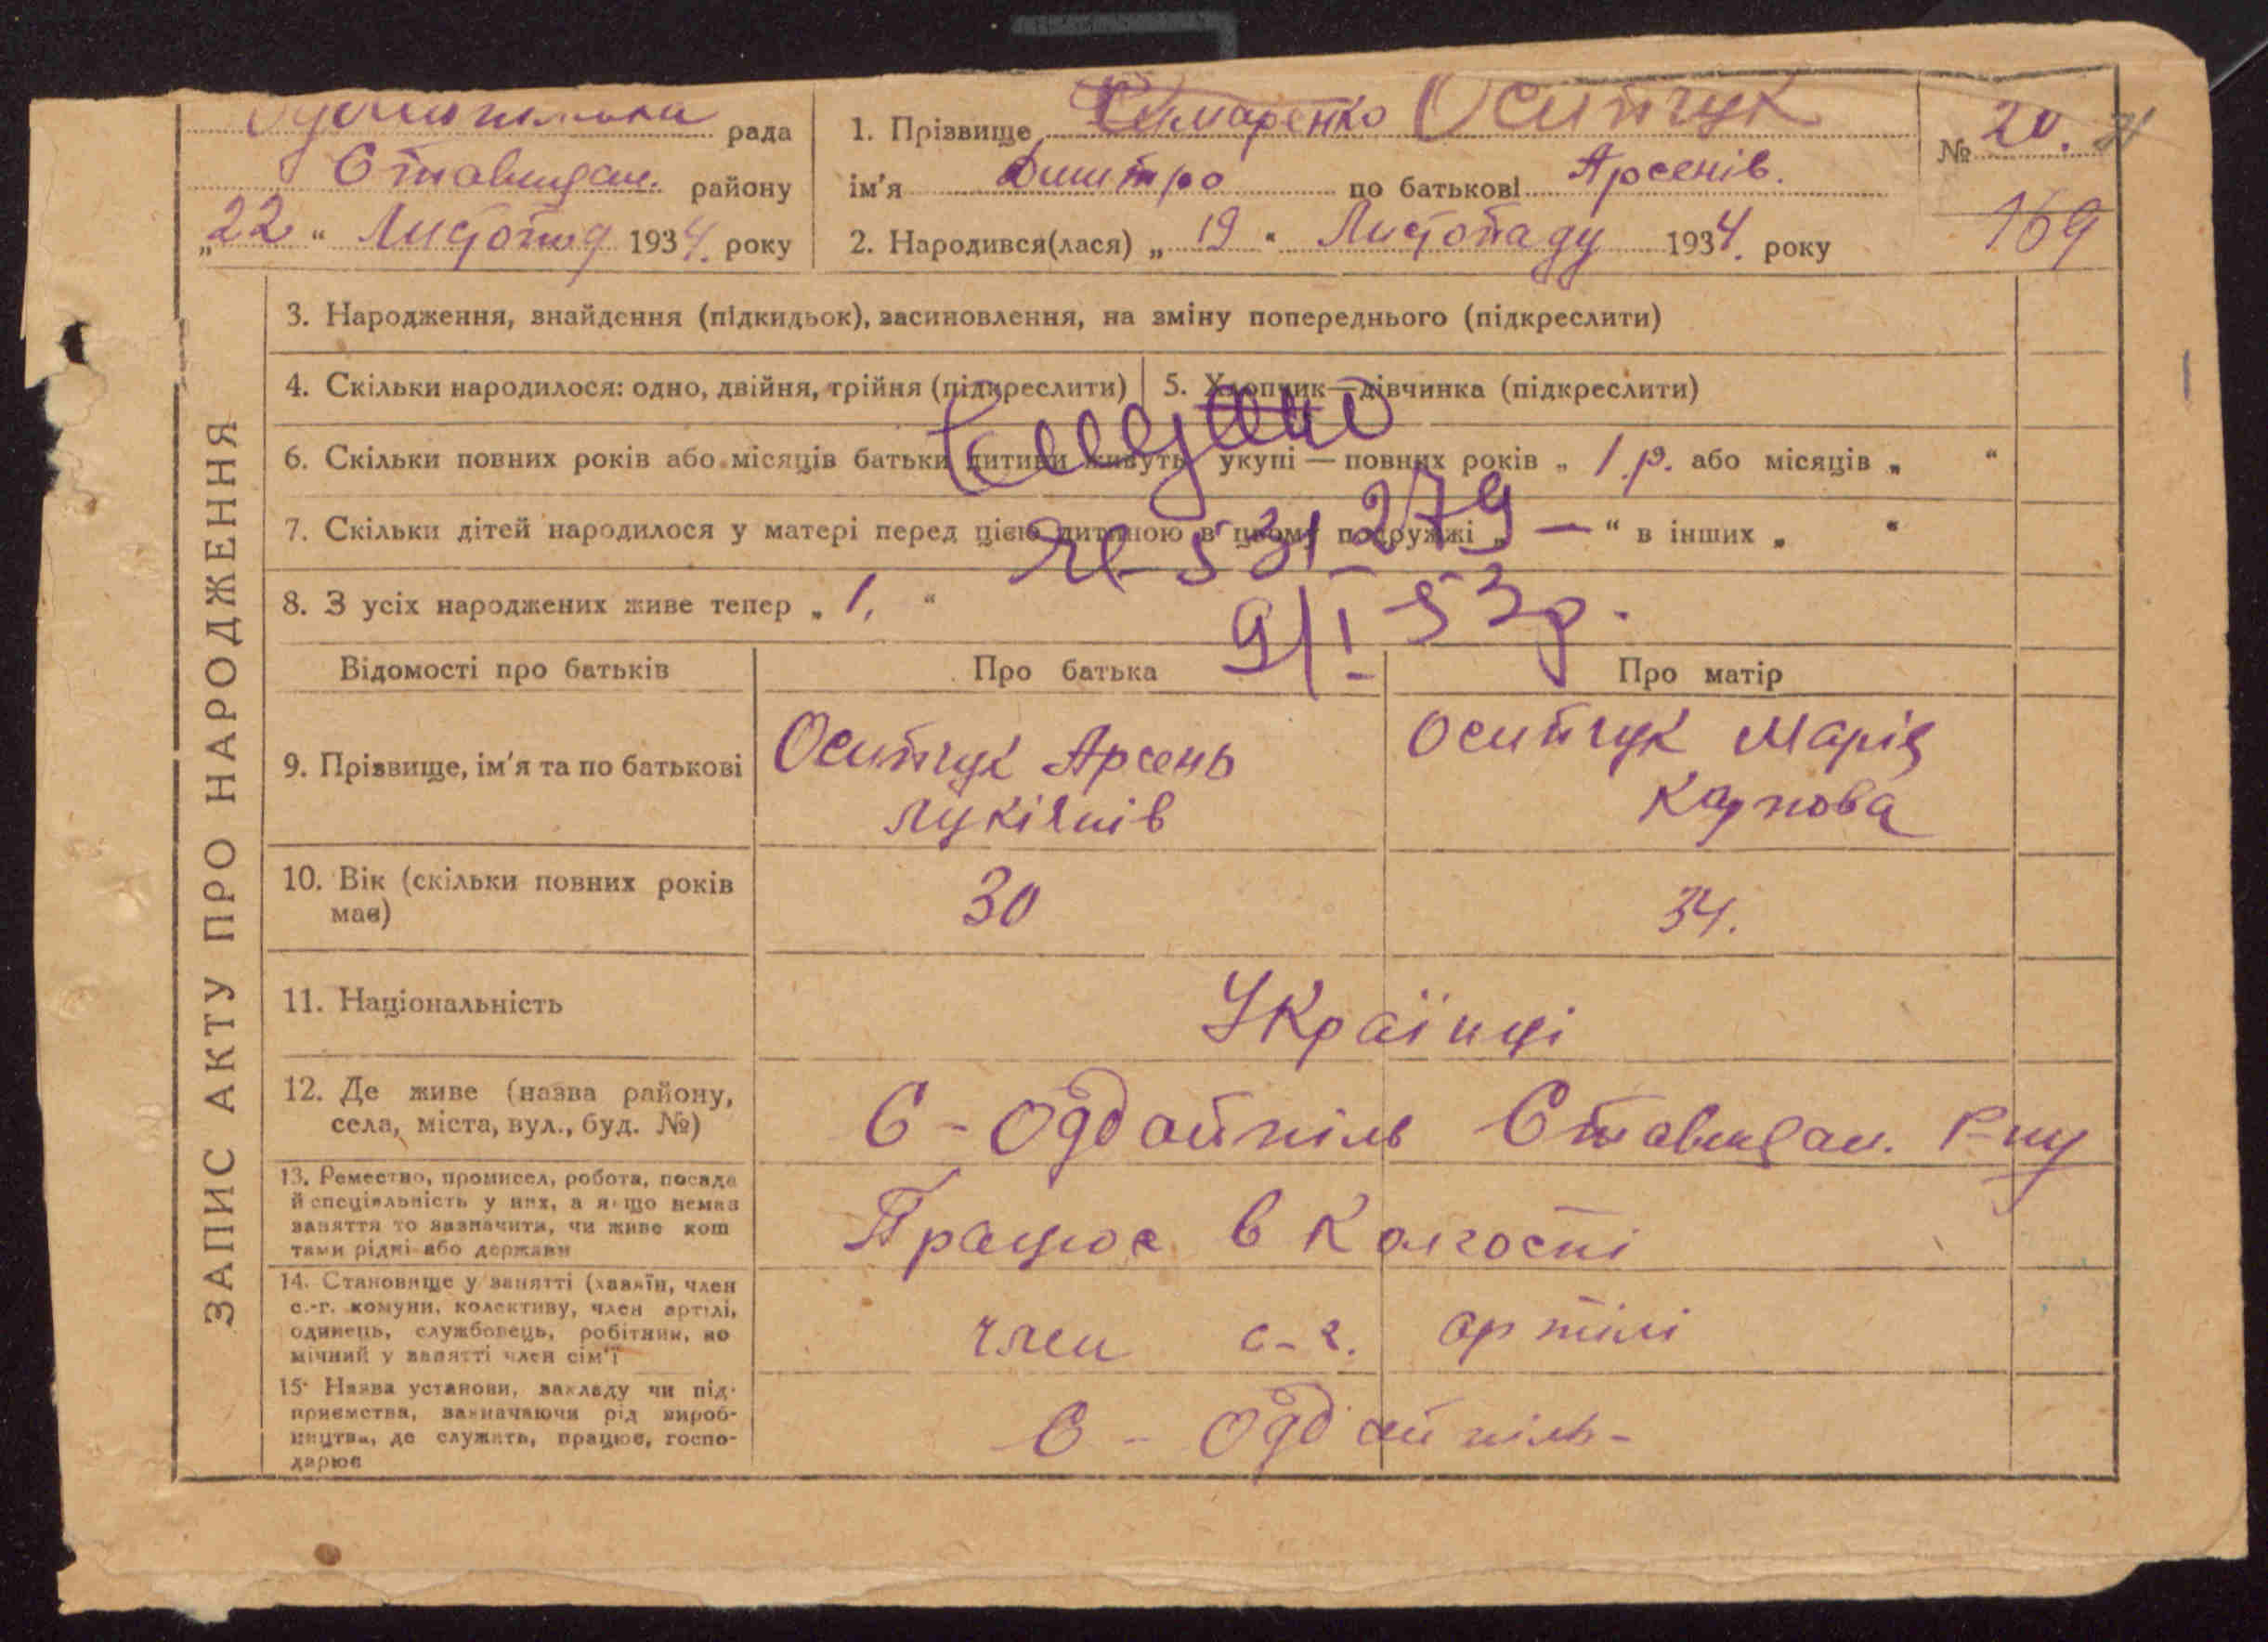 рада
Ставищан. району
„22" Листопад 1934. року
1. Прізвище Осипчук
ім'я Дмитро по батькові Арсенів.
2. Народився(лася) „19" Листопаду 1934. року
№ 20.
169
ЗАПИС АКТУ ПРО НАРОДЖЕННЯ
3. Народження, знайдення (підкидьок), засиновлення, на зміну попереднього (підкреслити)
4. Скільки народилося: одно, двійня, трійня (підкреслити)
5. Хлопчик—дівчинка (підкреслити)
6. Скільки повних років або місяців батьки дитини живуть укупі — повних років „ 1.р. або місяців „ "
7. Скільки дітей народилося у матері перед цією дитиною в цьому подружжі „ — " в інших „ "
531279
8. З усіх народжених живе тепер „ 1. "
9/I 53р.
Відомості про батьків Про батька Про матір
9. Прізвище, ім'я та по батькові
Осипчук Арсень
Лукіянів
Осипчук Марія
Карпова
10. Вік (скільки повних років
має)
30 34.
11. Національність
Українці
12. Де живе (назва району,
села, міста, вул., буд. №)
С - Оддайпіль Ставищан. Р-ну
13. Ремество, промисел, робота, посада
й спеціяльність у них, а якщо немає
заняття то зазначити, чи живе кош
тами рідні або держави
Працює в Колгоспі
14. Становище у занятті (хазяїн, член
с.-г. комуни, колективу, член артілі,
одинець, службовець, робітник, по
мічний у занятті член сім'ї
член с-г. артілі
15. Назва установи, закладу чи під-
приємства, зазначаючи рід вироб-
ництва, де служить, працює, госпо-
дарює
С - Оддайпіль-